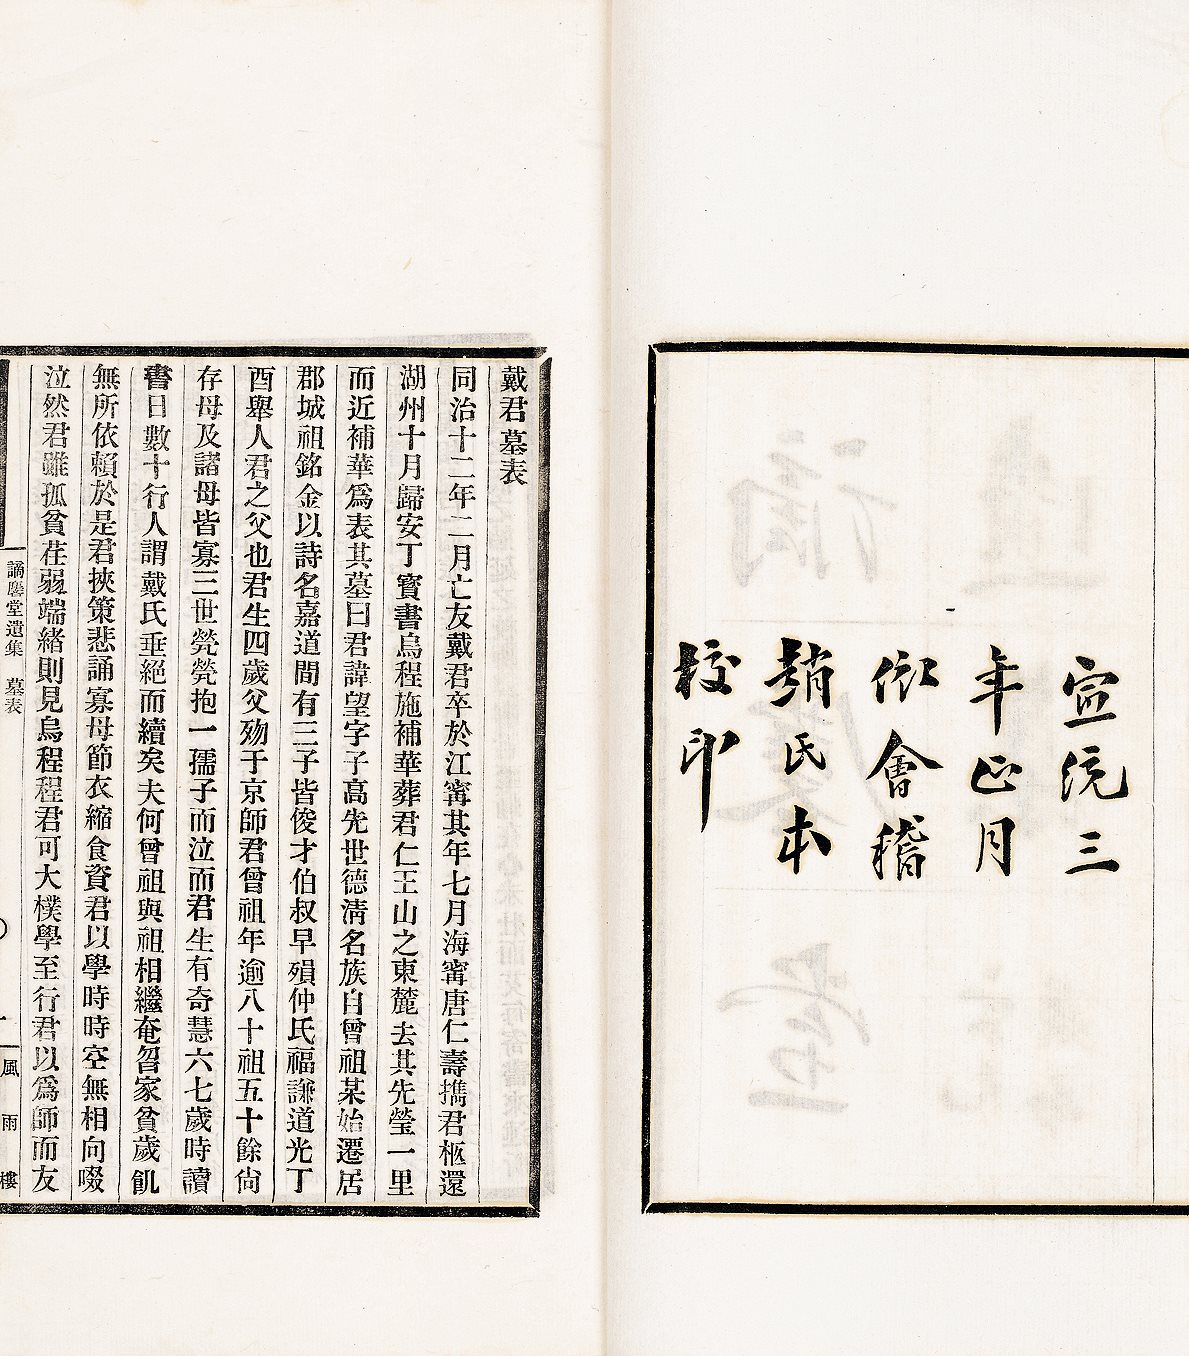 宣統三
年正月
依會稽
趙氏本
校印
戴君墓表
同治十二年二月亡友戴君卒於江寗其年七月海寗唐仁壽攜君柩還
湖州十月歸安丁寶書烏程施補華葬君仁王山之東麓去其先塋一里
而近補華爲表其墓曰君諱望字子高先世德清名族自曾祖某始遷居
郡城祖銘金以詩名嘉道間有三子皆俊才伯叔早殞仲氏福謙道光丁
酉舉人君之父也君生四歲父歾于京師君曾祖年逾八十祖五十餘尙
存母及諸母皆寡三世煢煢抱一孺子而泣而君生有奇慧六七歲時讀
書日數十行人謂戴氏垂絕而續矣夫何曾祖與祖相繼奄曶家貧歲飢
無所依賴於是君挾策悲誦寡母節衣縮食資君以學時時空無相向啜
泣然君雖孤貧荏弱端緒則見烏程程君可大樸學至行君以爲師而友
謫麐堂遺集 墓表
一 風雨樓